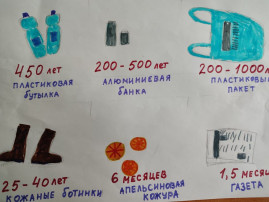 450 лет
пластиковая
бутылка
200-500 лет
алюминиевая
банка
200-1000 ле
пластиковый
пакет
25-40 лет
кожаные ботинки
6 месяцев
апельсиновая
кожура
1,5 меся
газета